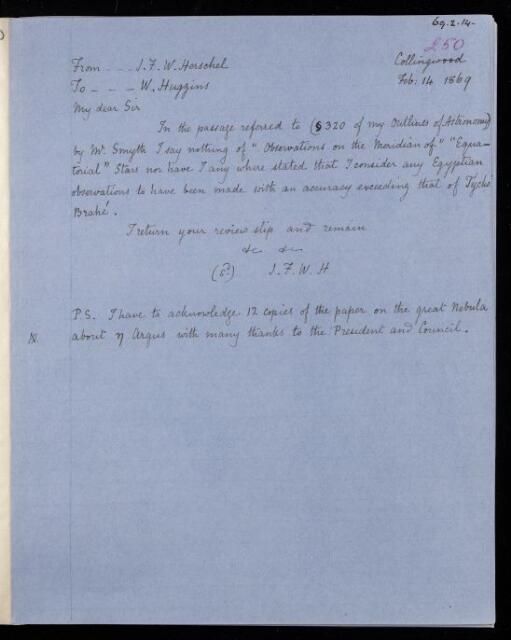 69.2.14.
250
From - - - J.F.W. Herschel
Collingwood
To - - - W. Huggins
Feb: 14 1869
My dear Sir
In the passage referred to (§320 of my Outlines of Astronomy)
by Mr. Smyth I say nothing of "Observations on the Meridian of" "Equa-
torial" Stars nor have I any where stated that I consider any Egyptian
observations to have been made with an accuracy exceeding that of Tycho
Brahé.
I return your review slip and remain
&c &c
(sd) J.F.W.H
P.S. I have to acknowledge 12 copies of the paper on the great Nebula
about η Argus with many thanks to the President and Council.